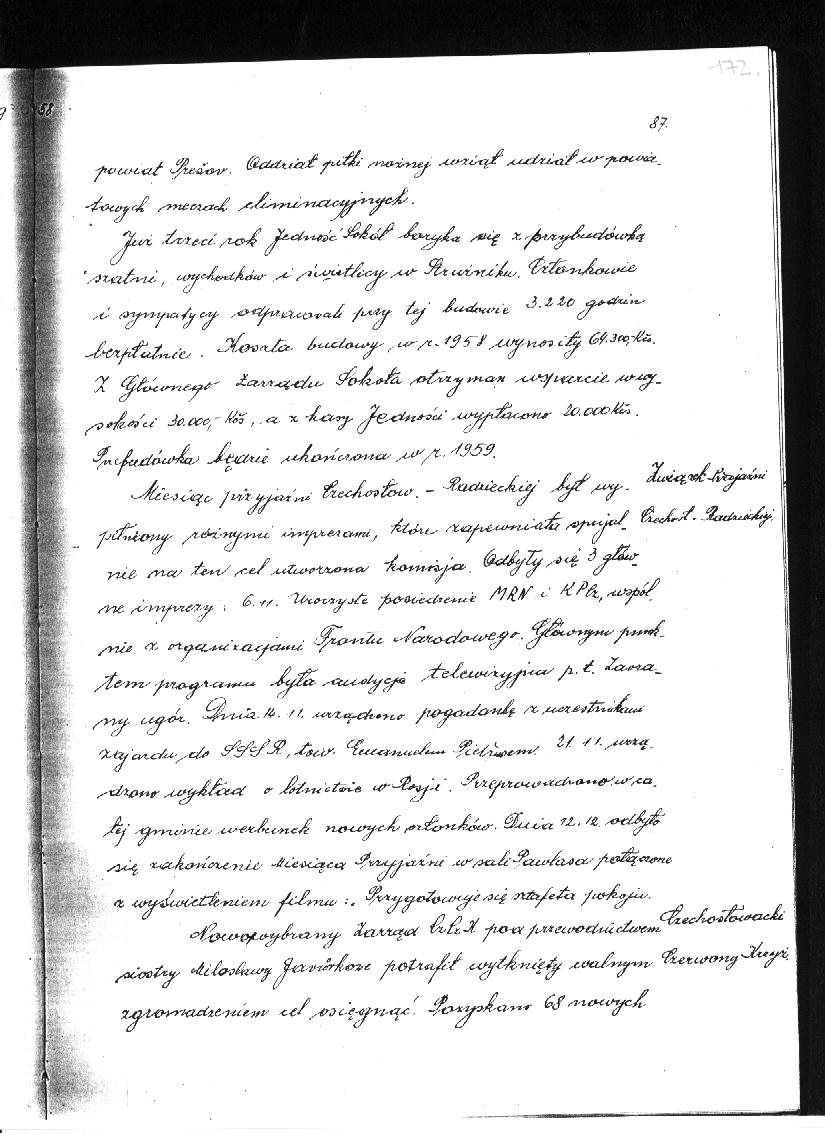 172.
58
87.
powiat Prešov. Oddział piłki nożnej wziął udział w powia-
towych meczach eliminacyjnych.
Już trzeci rok Jedność Sokół boryka się z przybudówką
szatni, wychodków i świetlicy w Strwiniku. Członkowie
i sympatycy odpracowali przy tej budowie 3.220 godzin
bezpłatnie. Koszta budowy w r. 1958 wynosiły 64.300,- Kčs.
Z Głównego Zarządu Sokoła otrzyman wsparcie w wy-
sokości 30.000,- Kčs, a z kasy Jedności wypłacono 20.000 Kčs.
Przbudówka będzie ukończona w r. 1959.
Miesiąc przyjaźni Czechosłow. - Radzieckiej był wy-
Związek Przyjaźni
pełniony różnymi imprezami, które zapewniała specjal-
Czechosł. - Radzieckiej
nie na ten cel utworzona komisja. Odbyły się 3 głów-
ne imprezy: 6.11. Uroczyste posiedzenie MRN i KPCz, wspól-
nie z organizacjami Frontu Narodowego. Głównym punk-
tem programu była audycja telewizyjna p.t. Zaora-
ny ugór. Dnia 14. 11. urządzono pogadankę z uczestnikami
zajazdu do SSSR, tow. Emanuelem 21. 11. urzą-
dzono wykład o lotnictwie w Rosji. Przeprowadzono w ca-
łej gminie werbunek nowych członków. Dnia 12. 12. odbyło
się zakończenie Miesiąca Przyjaźni w sali Pawlasa połączone
z wyświetleniem filmu: Przygotowuje się sztafeta pokoju.
Nowowybrany Zarząd CzCzK pod przewodnictwem
Czechosłowacki
siostry Milosławy potrafił wytknięty walnym
Czerwony Krzyż.
zgromadzeniem cel osięgnąć. Pozyskano 68 nowych